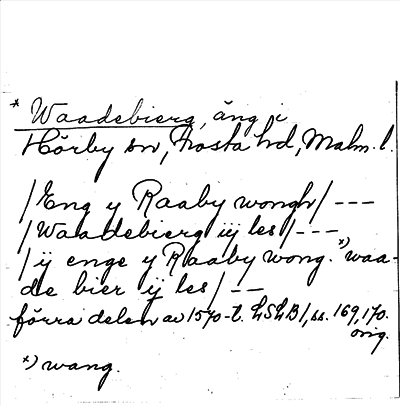 * Waadebierg, äng i
Hörby sn, Frosta hd, Malm. l.
/Eng y Raaby wongh/ ---
/Waadebierg iij les/ ---
/ij enge y Raaby wong. *) waa-
de bier ij les/ --
förra delen av 1570-t. LSLB1, ss. 169, 170.
orig.
*) wang.